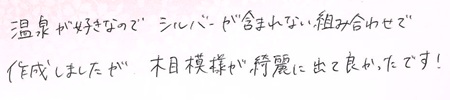 温泉が好きなので シルバーが含まれない組み合わせで
作成しましたが 木目模様が綺麗に出て良かったです!